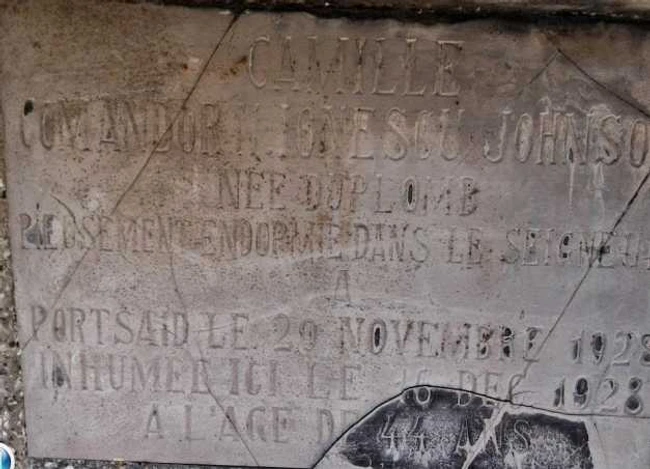 CAMILLE
COMANDOR IONESCU JOHNSO
NÉE DUPLOMB
PIEUSEMENT ENDORMIE DANS LE SEIGNEU
A
PORT SAID LE 29 NOVEMBRE 1928
INHUMEE ICI LE 16 DEC 1928
A L'AGE DE 44 ANS